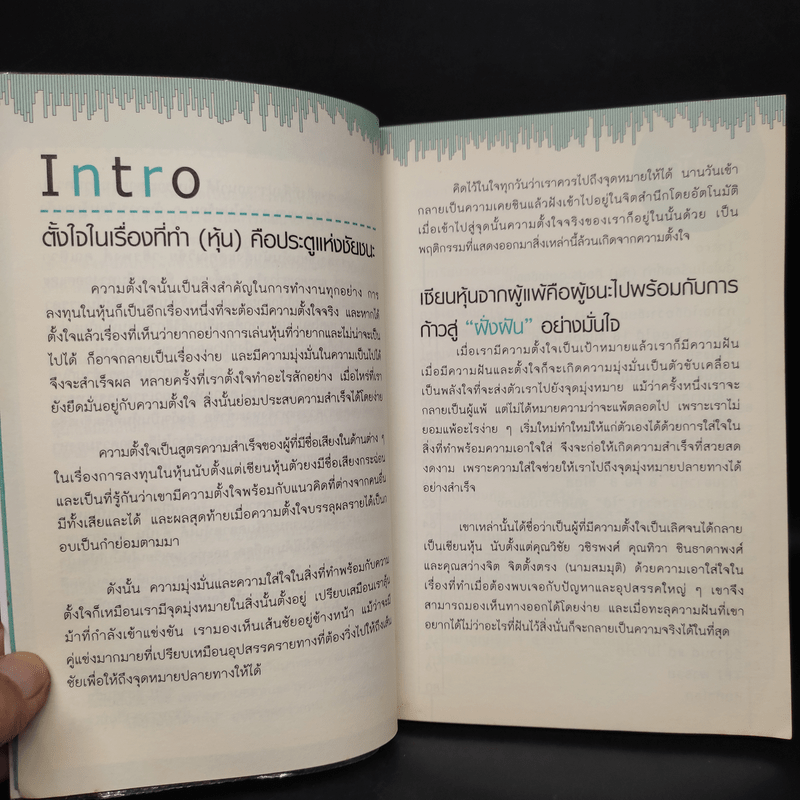 Intro
ตั้งใจในเรื่องที่ทำ (หุ้น) คือประตูแห่งชัยชนะ
ความตั้งใจนั้นเป็นสิ่งสำคัญในการทำงานทุกอย่าง การ
ลงทุนในหุ้นก็เป็นอีกเรื่องหนึ่งที่จะต้องมีความตั้งใจจริง และหากได้
ตั้งใจแล้วเรื่องที่เห็นว่ายากอย่างการเล่นหุ้นที่ว่ายากและไม่น่าจะเป็น
ไปได้ ก็อาจกลายเป็นเรื่องง่าย และมีความมุ่งมั่นในความเป็นไปได้
จึงจะสำเร็จผล หลายครั้งที่เราตั้งใจทำอะไรสักอย่าง เมื่อไหร่ที่เรา
ยังยึดมั่นอยู่กับความตั้งใจ สิ่งนั้นย่อมประสบความสำเร็จได้โดยง่าย
ความตั้งใจเป็นสูตรความสำเร็จของผู้ที่มีชื่อเสียงในด้านต่าง ๆ
ในเรื่องการลงทุนในหุ้นนับตั้งแต่เซียนหุ้นตัวยงมีชื่อเสียงกระฉ่อน
และเป็นที่รู้กันว่าเขามีความตั้งใจพร้อมกับแนวคิดที่ต่างจากคนอื่น
มีทั้งเสียและได้ และผลสุดท้ายเมื่อความตั้งใจบรรลุผลรายได้เป็นก
อบเป็นกำย่อมตามมา
ดังนั้น ความมุ่งมั่นและความใส่ใจในสิ่งที่ทำพร้อมกับความ
ตั้งใจก็เหมือนเรามีจุดมุ่งหมายในสิ่งนั้นตั้งอยู่ เปรียบเสมือนเราคุ้น
ม้าที่กำลังเข้าแข่งขัน เรามองเห็นเส้นชัยอยู่ข้างหน้า แม้ว่าจะมี
คู่แข่งมากมายที่เปรียบเหมือนอุปสรรครายทางที่ต้องวิ่งไปให้ถึงเส้น
ชัยเพื่อให้ถึงจุดหมายปลายทางให้ได้
คิดไว้ในใจทุกวันว่าเราควรไปถึงจุดหมายให้ได้ นานวันเข้า
กลายเป็นความเคยชินแล้วฝังเข้าไปอยู่ในจิตสำนึกโดยอัตโนมัติ
เมื่อเข้าไปสู่จุดนั้นความตั้งใจจริงของเราก็อยู่ในนั้นด้วย เป็น
พฤติกรรมที่แสดงออกมาสิ่งเหล่านี้ล้วนเกิดจากความตั้งใจ
เซียนหุ้นจากผู้แพ้คือผู้ชนะไปพร้อมกับการ
ก้าวสู่ "ฝั่งฝัน" อย่างมั่นใจ
เมื่อเรามีความตั้งใจเป็นเป้าหมายแล้วเราก็มีความฝัน
เมื่อมีความฝันและตั้งใจก็จะเกิดความมุ่งมั่นเป็นตัวขับเคลื่อน
เป็นพลังใจที่จะส่งตัวเราไปยังจุดมุ่งหมาย แม้ว่าครั้งหนึ่งเราจะ
กลายเป็นผู้แพ้ แต่ไม่ได้หมายความว่าจะแพ้ตลอดไป เพราะเราไม่
ยอมแพ้อะไรง่าย ๆ เริ่มใหม่ทำใหม่ให้แก่ตัวเองได้ด้วยการใส่ใจใน
สิ่งที่ทำพร้อมความเอาใจใส่ จึงจะก่อให้เกิดความสำเร็จที่สวยสด
งดงาม เพราะความใส่ใจช่วยให้เราไปถึงจุดมุ่งหมายปลายทางได้
อย่างสำเร็จ
เขาเหล่านั้นได้ชื่อว่าเป็นผู้ที่มีความตั้งใจเป็นเลิศจนได้กลาย
เป็นเซียนหุ้น นับตั้งแต่คุณวิชัย วชิรพงศ์ คุณทิวา ชินธาดาพงศ์
และคุณสว่างจิต จิตตั้งตรง (นามสมมุติ) ด้วยความเอาใส่ใจใน
เรื่องที่ทำเมื่อต้องพบเจอกับปัญหาและอุปสรรคใหญ่ ๆ เขาจึง
สามารถมองเห็นทางออกได้โดยง่าย และเมื่อทะลุความฝันที่เขา
อยากได้ไม่ว่าอะไรที่ฝันไว้สิ่งนั้นก็จะกลายเป็นความจริงได้ในที่สุด